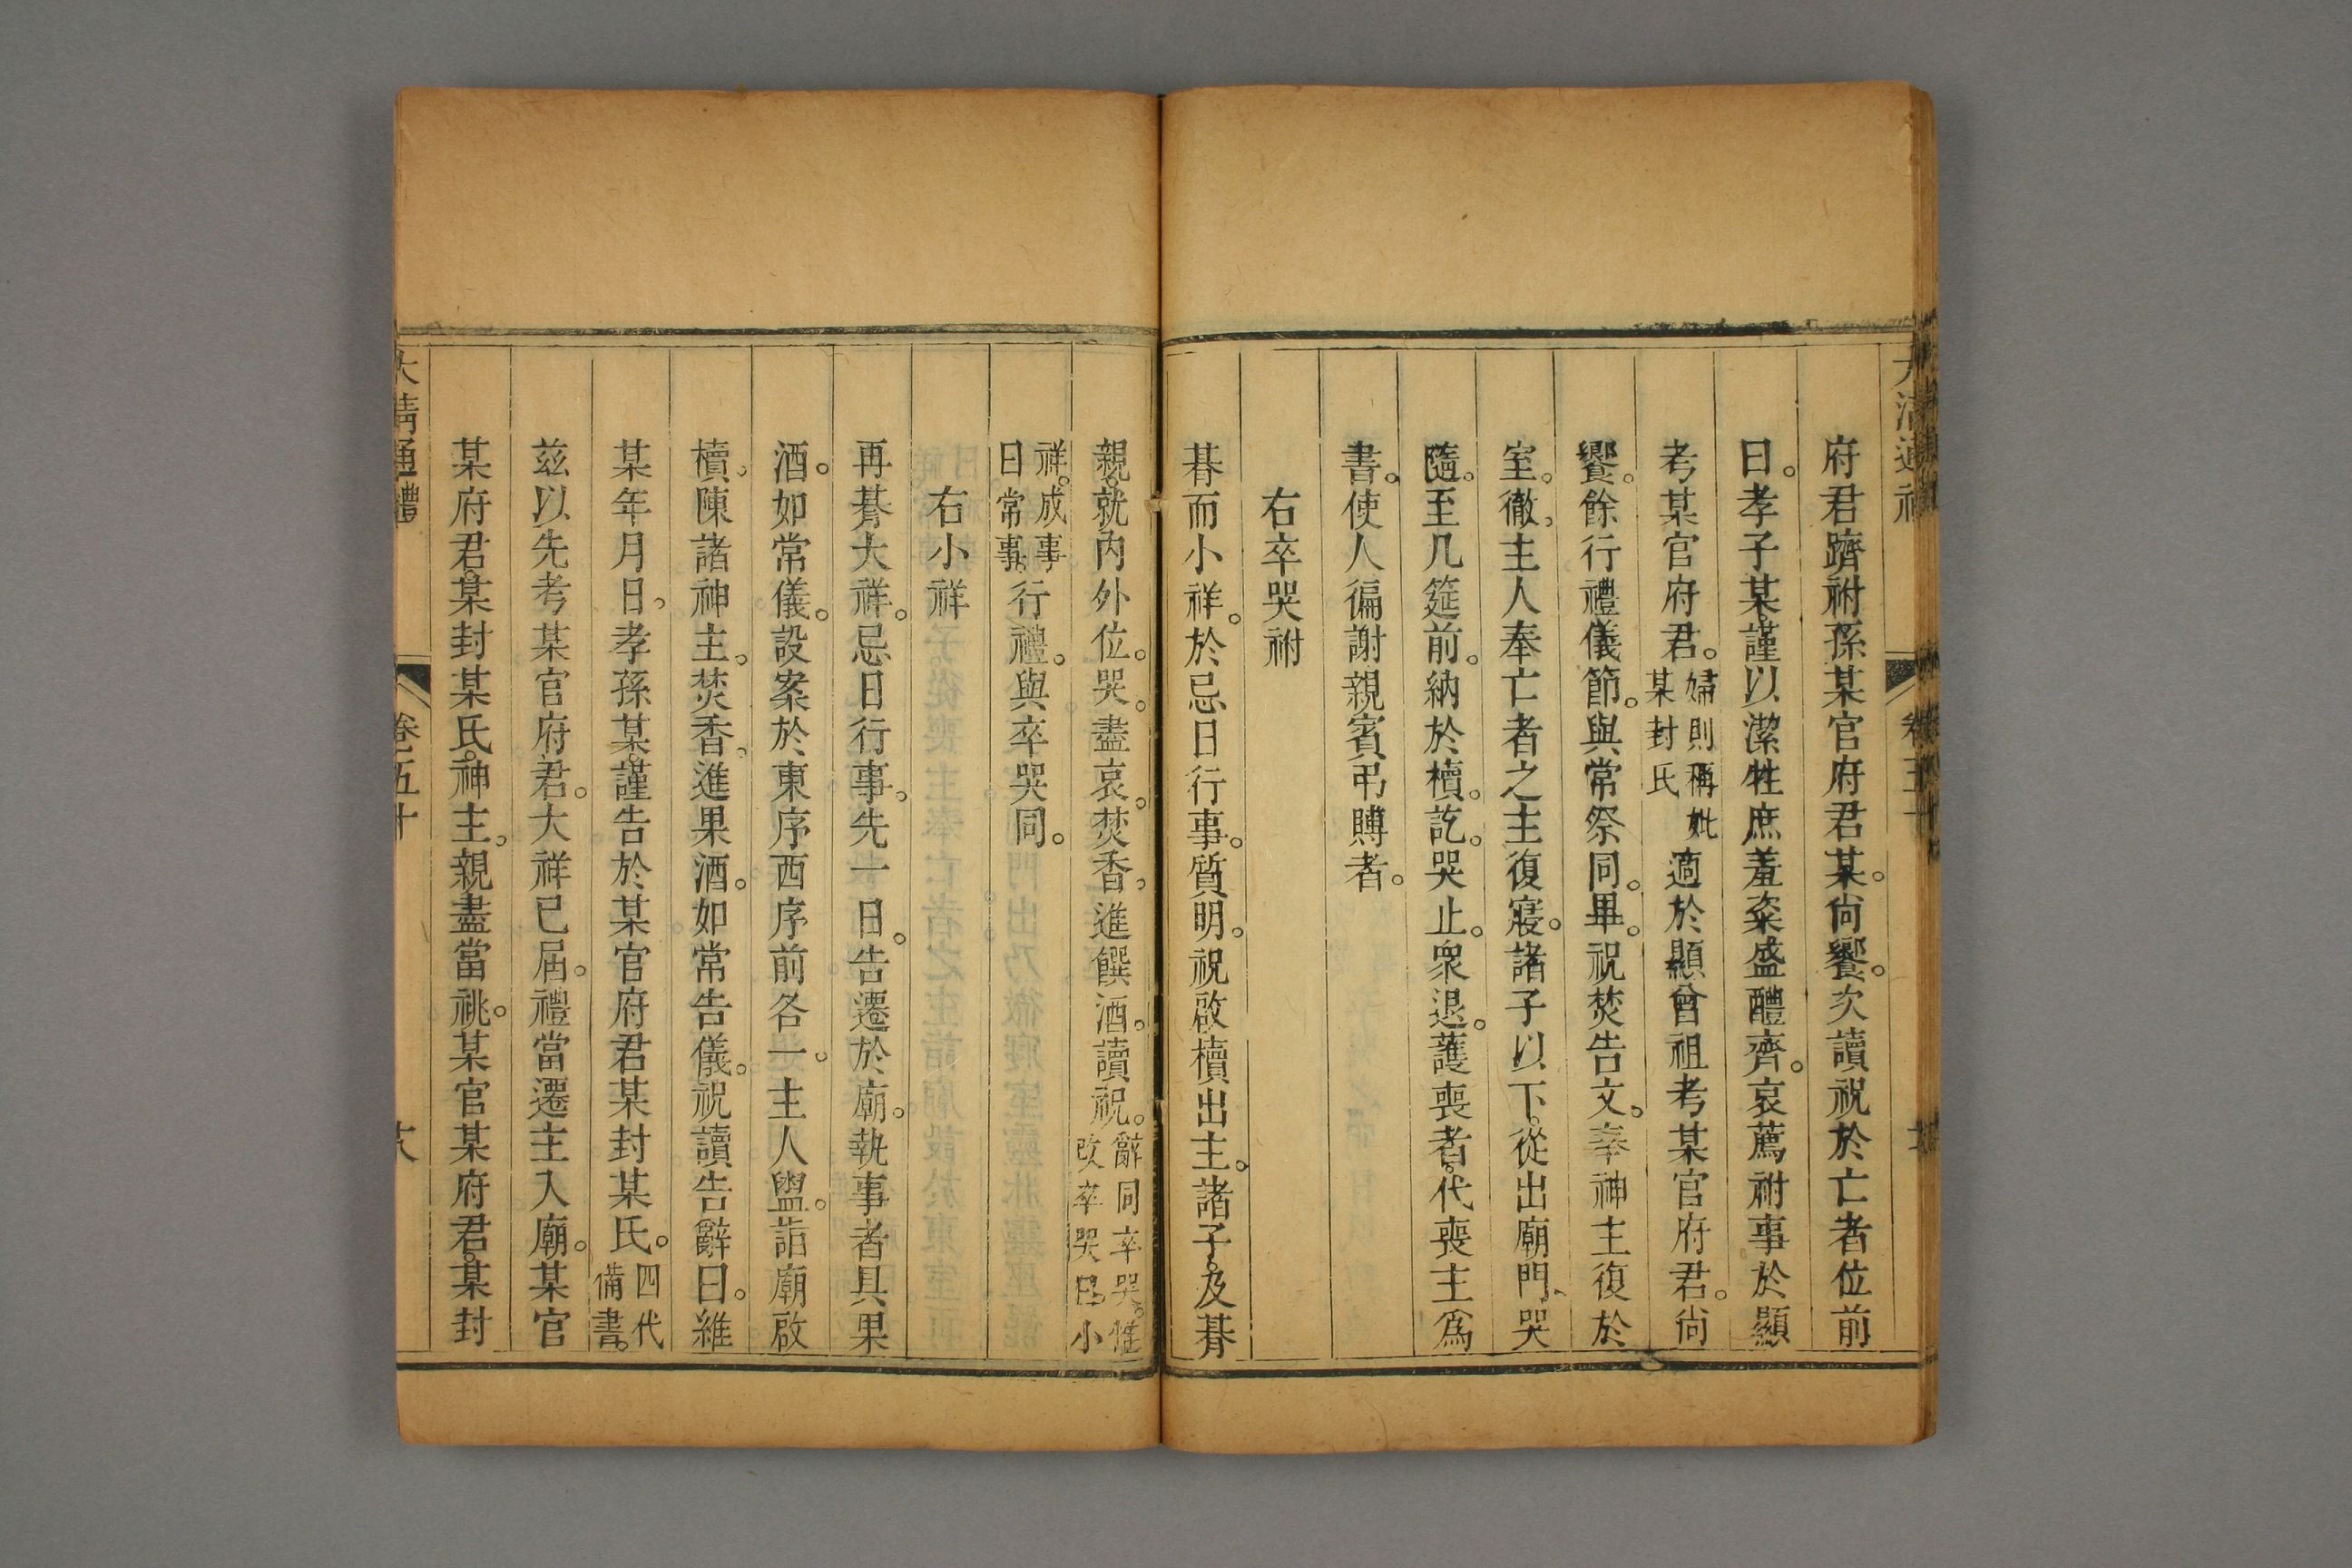 府君躋祔孫某官府君某。尙饗。次讀祝於亡者位前
曰。孝子某。謹以潔牲庶羞粢盛醴齊。哀薦祔事於顯
考某官府君。婦則稱妣某封氏適於顯曾祖考某官府君。尙
饗。餘行禮儀節。與常祭同。畢。祝焚告文。奉神主復於
室。徹。主人奉亡者之主復寢。諸子以下。從出廟門。哭
隨。至几筵前。納於櫝。訖。哭止。衆退。護喪者。代喪主爲
書。使人徧謝親賓弔賻者。
右卒哭祔
朞而小祥。於忌日行事。質明。祝啟櫝出主。諸子。及朞
親。就內外位。哭。盡哀。焚香。進饌酒。讀祝。辭同卒哭。惟改卒哭曰。小
祥。成事曰常事。行禮。與卒哭同。
右小祥
再朞大祥。忌日行事。先一日。告遷於廟。執事者具果
酒。如常儀。設案於東序西序前各一。主人盥。詣廟啟
櫝。陳諸神主。焚香。進果酒。如常告儀。祝讀告辭曰。維
某年月日。孝孫某。謹告於某官府君某封某氏。四代備書。
茲以先考某官府君。大祥已屆。禮當遷主入廟。某官
某府君。某封某氏。神主。親盡當祧。某官某府君。某封
大淸通禮 卷五十 大